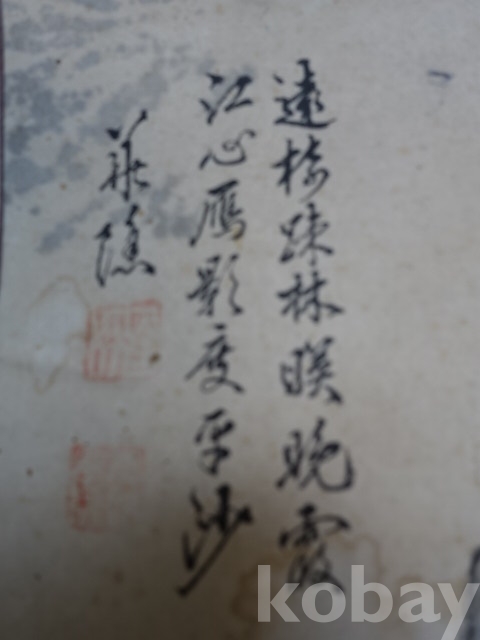 遠樹疎林暎晩霞
江心雁影度平沙
kobay